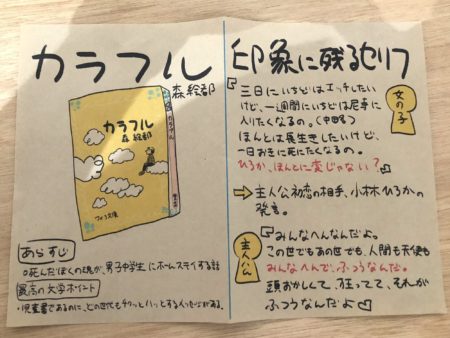 カラフル
森絵都
カラフル
森 絵都
カラフル
あらすじ
○死んだぼくの魂が、男子中学生にホームステイする話
最高の文学ポイント
・児童書であるのに、どの世代もチクッとハッとするメッセージがある。
印象に残るセリフ
『三日にいちどはエッチしたい
けど、一週間にいちどは尼寺に
入りたくなるの。(中略)
ほんとは長生きしたいけど、
一日おきに死にたくなるの。
ひろか、ほんとに変じゃない?』
女の子
⇒主人公初恋の相手、小林ひろかの
発言。
主人公
『みんなへんなんだよ。
この世でもあの世でも、人間も天使も
みんなへんで、ふつうなんだ。
頭おかしくて、狂ってて、それが
ふつうなんだよ』